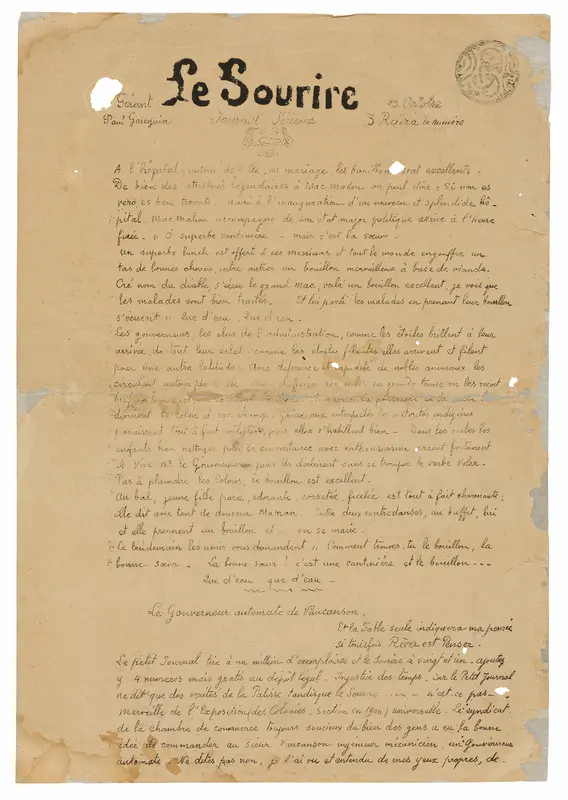 Le Sourire
Gérant
Paul Gauguin
Journal Sérieux
13 Octobre
3. Raëra le numéro
A l'Hôpital, autour de l'été, en mariage, les bouillons sont excellents.
De bien des attributs légendaires à Mac Mahon on peut dire : Si non es
vero, es ben trovato. ainsi à l'inauguration d'un nouveau et splendide hô-
pital, Mac Mahon accompagné de son état major politique arrive à l'heure
fixée. » O superbe cantinière - mais c'est la sœur.
Un superbe lunch est offert à ces messieurs et tout le monde engouffre un
tas de bonnes choses, entre autres un bouillon merveilleux à base de viande.
Cré nom du diable, s'écrie le grand Mac, voilà un bouillon excellent, je vois que
les malades sont bien traités. Et lui parti les malades en prenant leur bouillon
s'écrient » Que d'eau, Que d'eau.
Les gouverneurs, les élus de l'administration, comme les étoiles brillent à leur
arrivée de tout leur éclat ; comme les étoiles filantes elles arrivent et filent
pour une autre latitude. Avec déférence et de nobles animaux les
circulent autour
la poussière
paraissent tout à fait intelligents, elles s'habillent bien - Dans les écoles les
enfants bien nettoyés pour la circonstance avec enthousiasme crient fortement
» Vive Mr. le Gouverneur pour lui déclinent sans se tromper le verbe Voler.
Pas à plaindre les Colons, le bouillon est excellent.
Au bal, jeune fille parée, odorante, corsetée, ficelée est tout à fait charmante ;
elle dit avec tant de douceur Maman. Entre deux contredanses, au buffet, lui
et elle prennent un bouillon et .. on se marie.
Le lendemain les amis vous demandent » Comment trouves-tu le bouillon, la
bonne sœur. La bonne sœur ! c'est une cantinière et le bouillon ...
Que d'eau que d'eau -
Le Gouverneur automate de Vaucanson.
Et la Fable seule indiquera ma pensée
si toutefois Rêver est Penser.
Le petit Journal tire à un million d'exemplaires et le Sourire à vingt et un - ajoutez
y 4 numéros mais gratis au dépôt légal. Injustice des temps. Sur le Petit Journal
ne dit que des vérités de la Palisse tandis que le Sourire ... - n'est ce pas -
Merveille de l'Exposition (des Colonies, Section en 1900) universelle. Le syndicat
de la chambre de commerce toujours soucieux du bien des gens a eu la bonne
idée de commander au sieur Vaucanson ingénieur mécanicien, un Gouverneur
automate. Ne dites pas non, je l'ai vu et entendu de mes yeux propres, de.